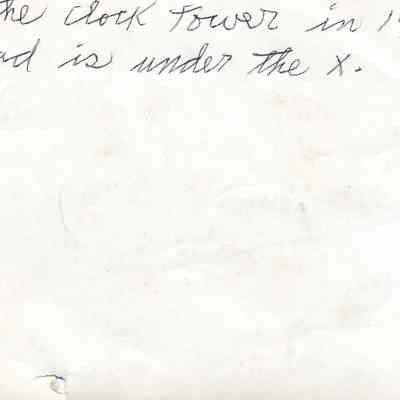 he clock Tower in 1
ad is under the X.